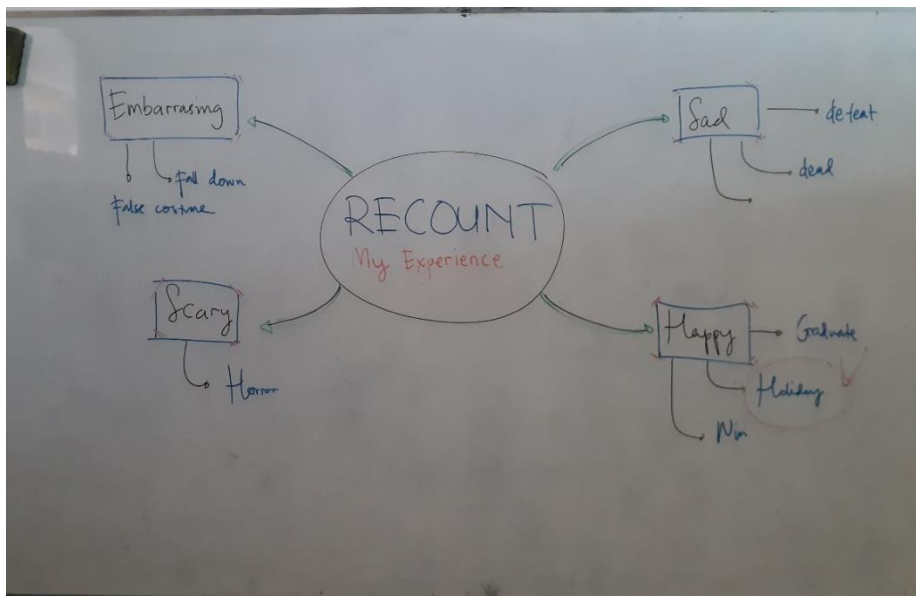 RECOUNT
My Experience
Embarrasing
Fall down
False costume
Sad
defeat
dead
Scary
Horror
Happy
Graduate
Holiday
Win